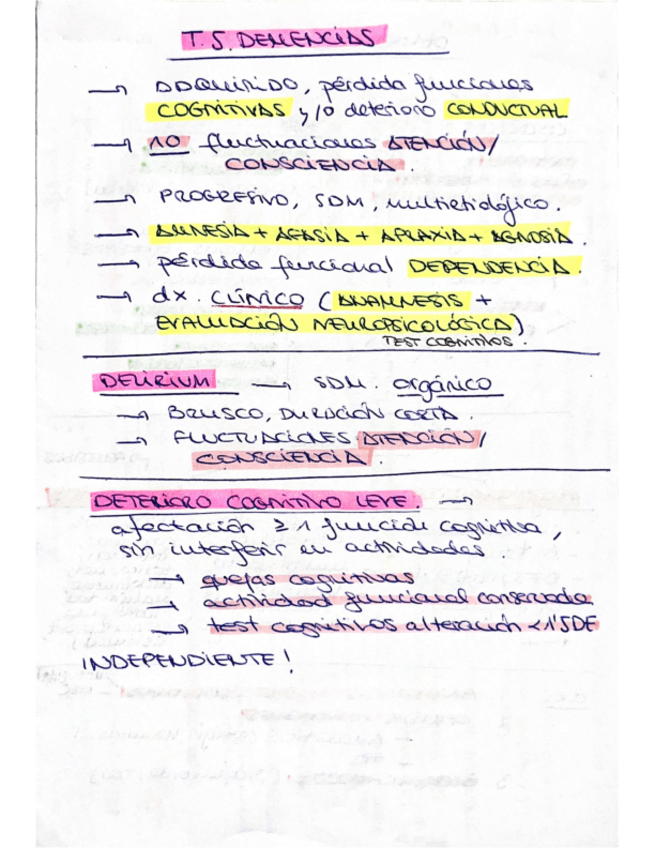 T.5. DEMENCIAS
→ ADQUIRIDO, pérdida funciones
COGNITIVAS y/o deterioro CONDUCTUAL
→ NO fluctuaciones ATENCIÓN/
CONSCIENCIA.
→ PROGRESIVO, SDM, multietiológico.
→ AMNESIA + AFASIA + APRAXIA + AGNOSIA.
→ pérdida funcional DEPENDENCIA.
→ dx. CLÍNICO (ANAMNESIS +
EVALUACIÓN NEUROPSICOLÓGICA)
TEST COGNITIVOS.
DELIRIUM → SDM. orgánico
→ BRUSCO, DURACIÓN CORTA.
→ FLUCTUACIONES ATENCIÓN/
CONSCIENCIA.
DETERIORO COGNITIVO LEVE. →
afectación ≥ 1 función cognitiva,
sin interferir en actividades
→ quejas cognitivas
→ actividad funcional conservada
→ test cognitivos alteración <1'5DE
¡INDEPENDIENTE!